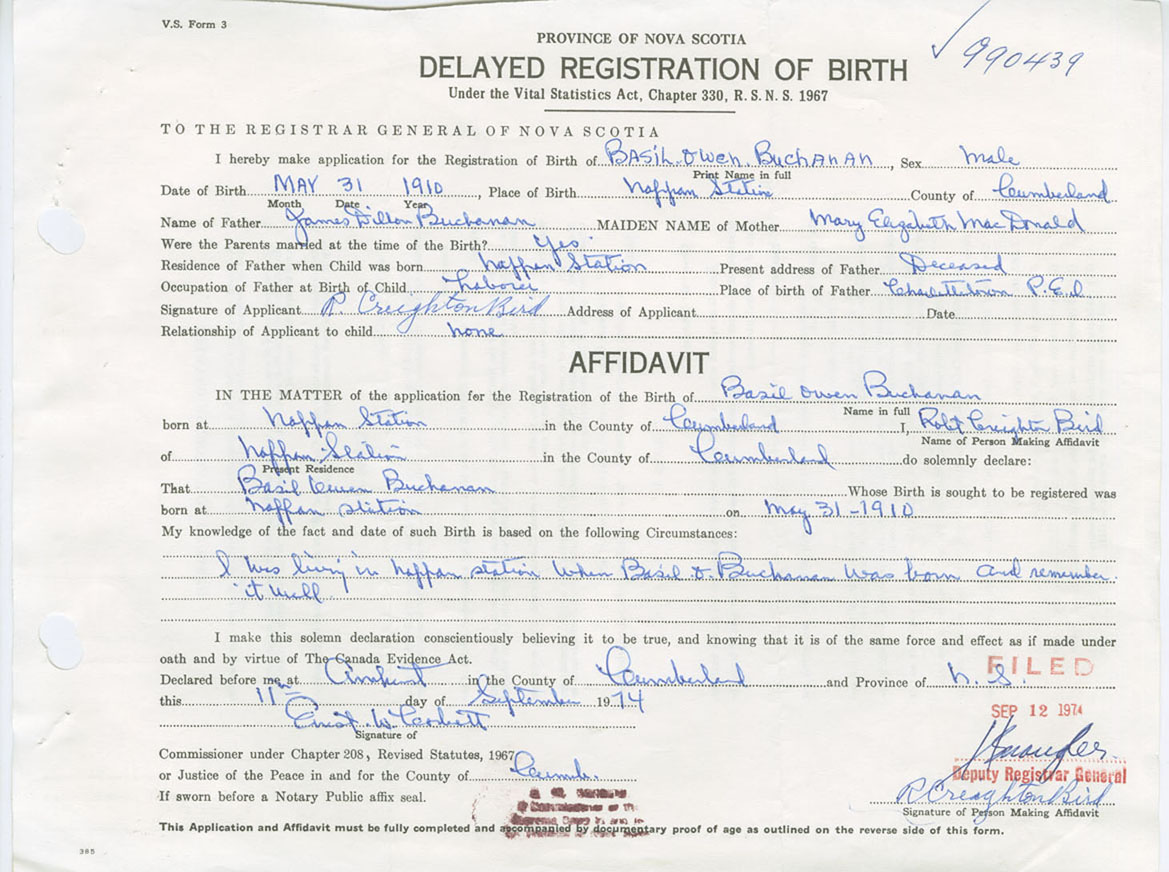 V.S. Form 3
990439
PROVINCE OF NOVA SCOTIA
DELAYED REGISTRATION OF BIRTH
Under the Vital Statistics Act, Chapter 330, R. S. N. S. 1967
TO THE REGISTRAR GENERAL OF NOVA SCOTIA
I hereby make application for the Registration of Birth of BASiL Owen BuchANAN, Sex Male
Print Name in full
Date of Birth MAY 31 1910, Place of Birth Nappan Station County of Cumberland
Month Date Year
Name of Father James Dillon Buchanan MAIDEN NAME of Mother Mary Elizabeth MacDonald
Were the Parents married at the time of the Birth? Yes.
Residence of Father when Child was born Nappan Station Present address of Father Deceased
Occupation of Father at Birth of Child Laborer Place of birth of Father Charlottetown P.E.I
Signature of Applicant R. Creighton Bird Address of Applicant Date
Relationship of Applicant to child none
AFFIDAVIT
IN THE MATTER of the application for the Registration of the Birth of Basil Owen Buchanan
Name in full
born at Nappan Station in the County of Cumberland I, Robt Creighton Bird
Name of Person Making Affidavit
of Nappan Station in the County of Cumberland do solemnly declare:
Present Residence
That Basil Owen Buchanan Whose Birth is sought to be registered was
born at Nappan Station on May 31-1910
My knowledge of the fact and date of such Birth is based on the following Circumstances:
I was living in Nappan station when Basil O. Buchanan was born and remember
it well
I make this solemn declaration conscientiously believing it to be true, and knowing that it is of the same force and effect as if made under
oath and by virtue of The Canada Evidence Act.
FILED
Declared before me at Amherst in the County of Cumberland and Province of N.S.
this 11th day of September 1974
SEP 12 1974
Signature of
Commissioner under Chapter 208, Revised Statutes, 1967
or Justice of the Peace in and for the County of Cumb.
Deputy Registrar General
If sworn before a Notary Public affix seal.
R Creighton Bird
Signature of Person Making Affidavit
This Application and Affidavit must be fully completed and accompanied by documentary proof of age as outlined on the reverse side of this form.
385